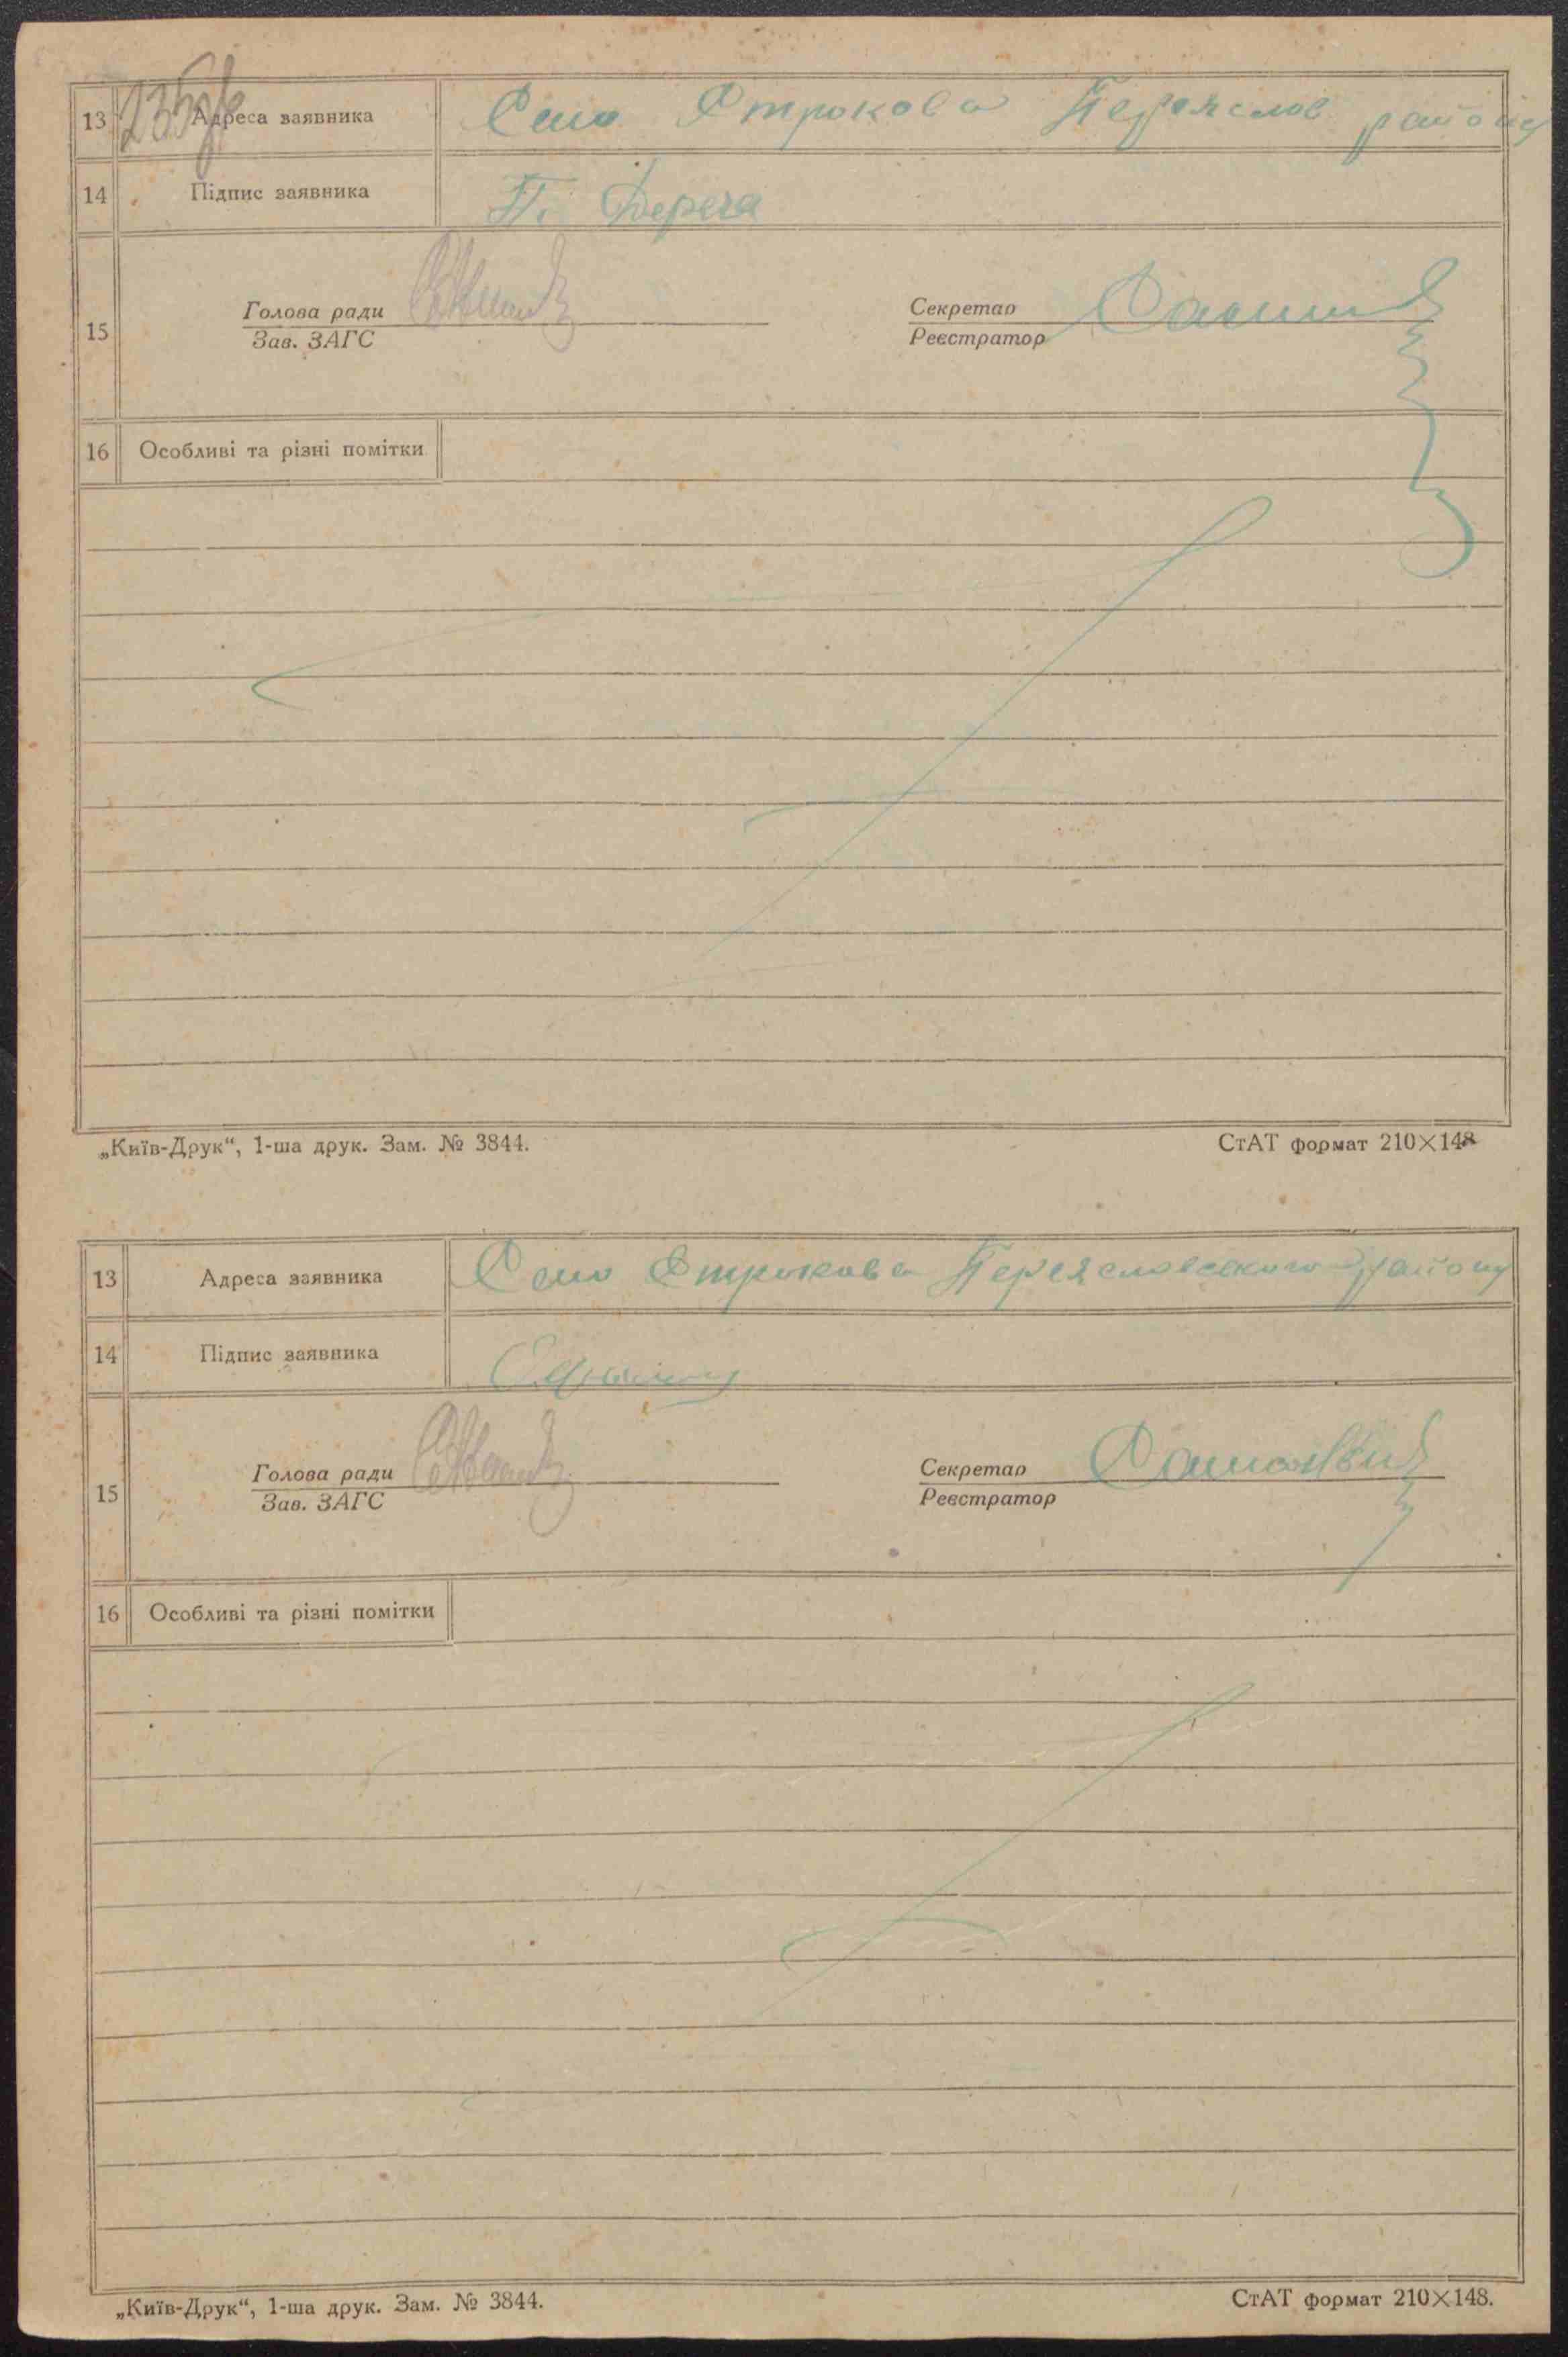 13 Адреса заявника Село Строкова Переяслов району
14 Підпис заявника П. Дереча
Голова ради Секретар
15
Зав. ЗАГС Реєстратор
16 Особливі та різні помітки
„Київ-Друк“, 1-ша друк. Зам. № 3844. СтАТ формат 210×148
13 Адреса заявника Село Строкова Переясловського району
14 Підпис заявника
Голова ради Секретар
15
Зав. ЗАГС Реєстратор
16 Особливі та різні помітки
„Київ-Друк“, 1-ша друк. Зам. № 3844. СтАТ формат 210×148.